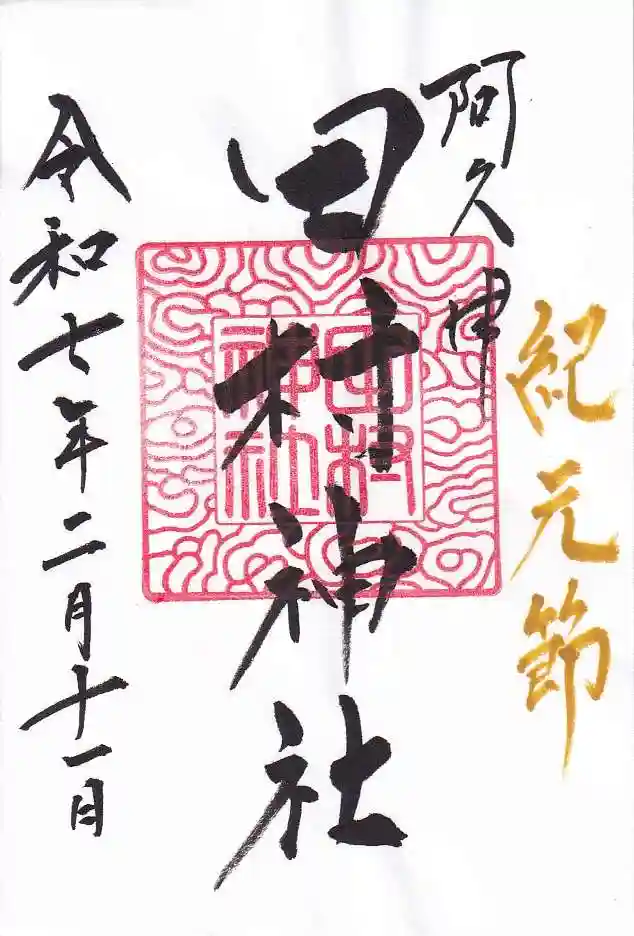 紀元節
阿久津
田村神社
田村神社
令和七年二月十一日